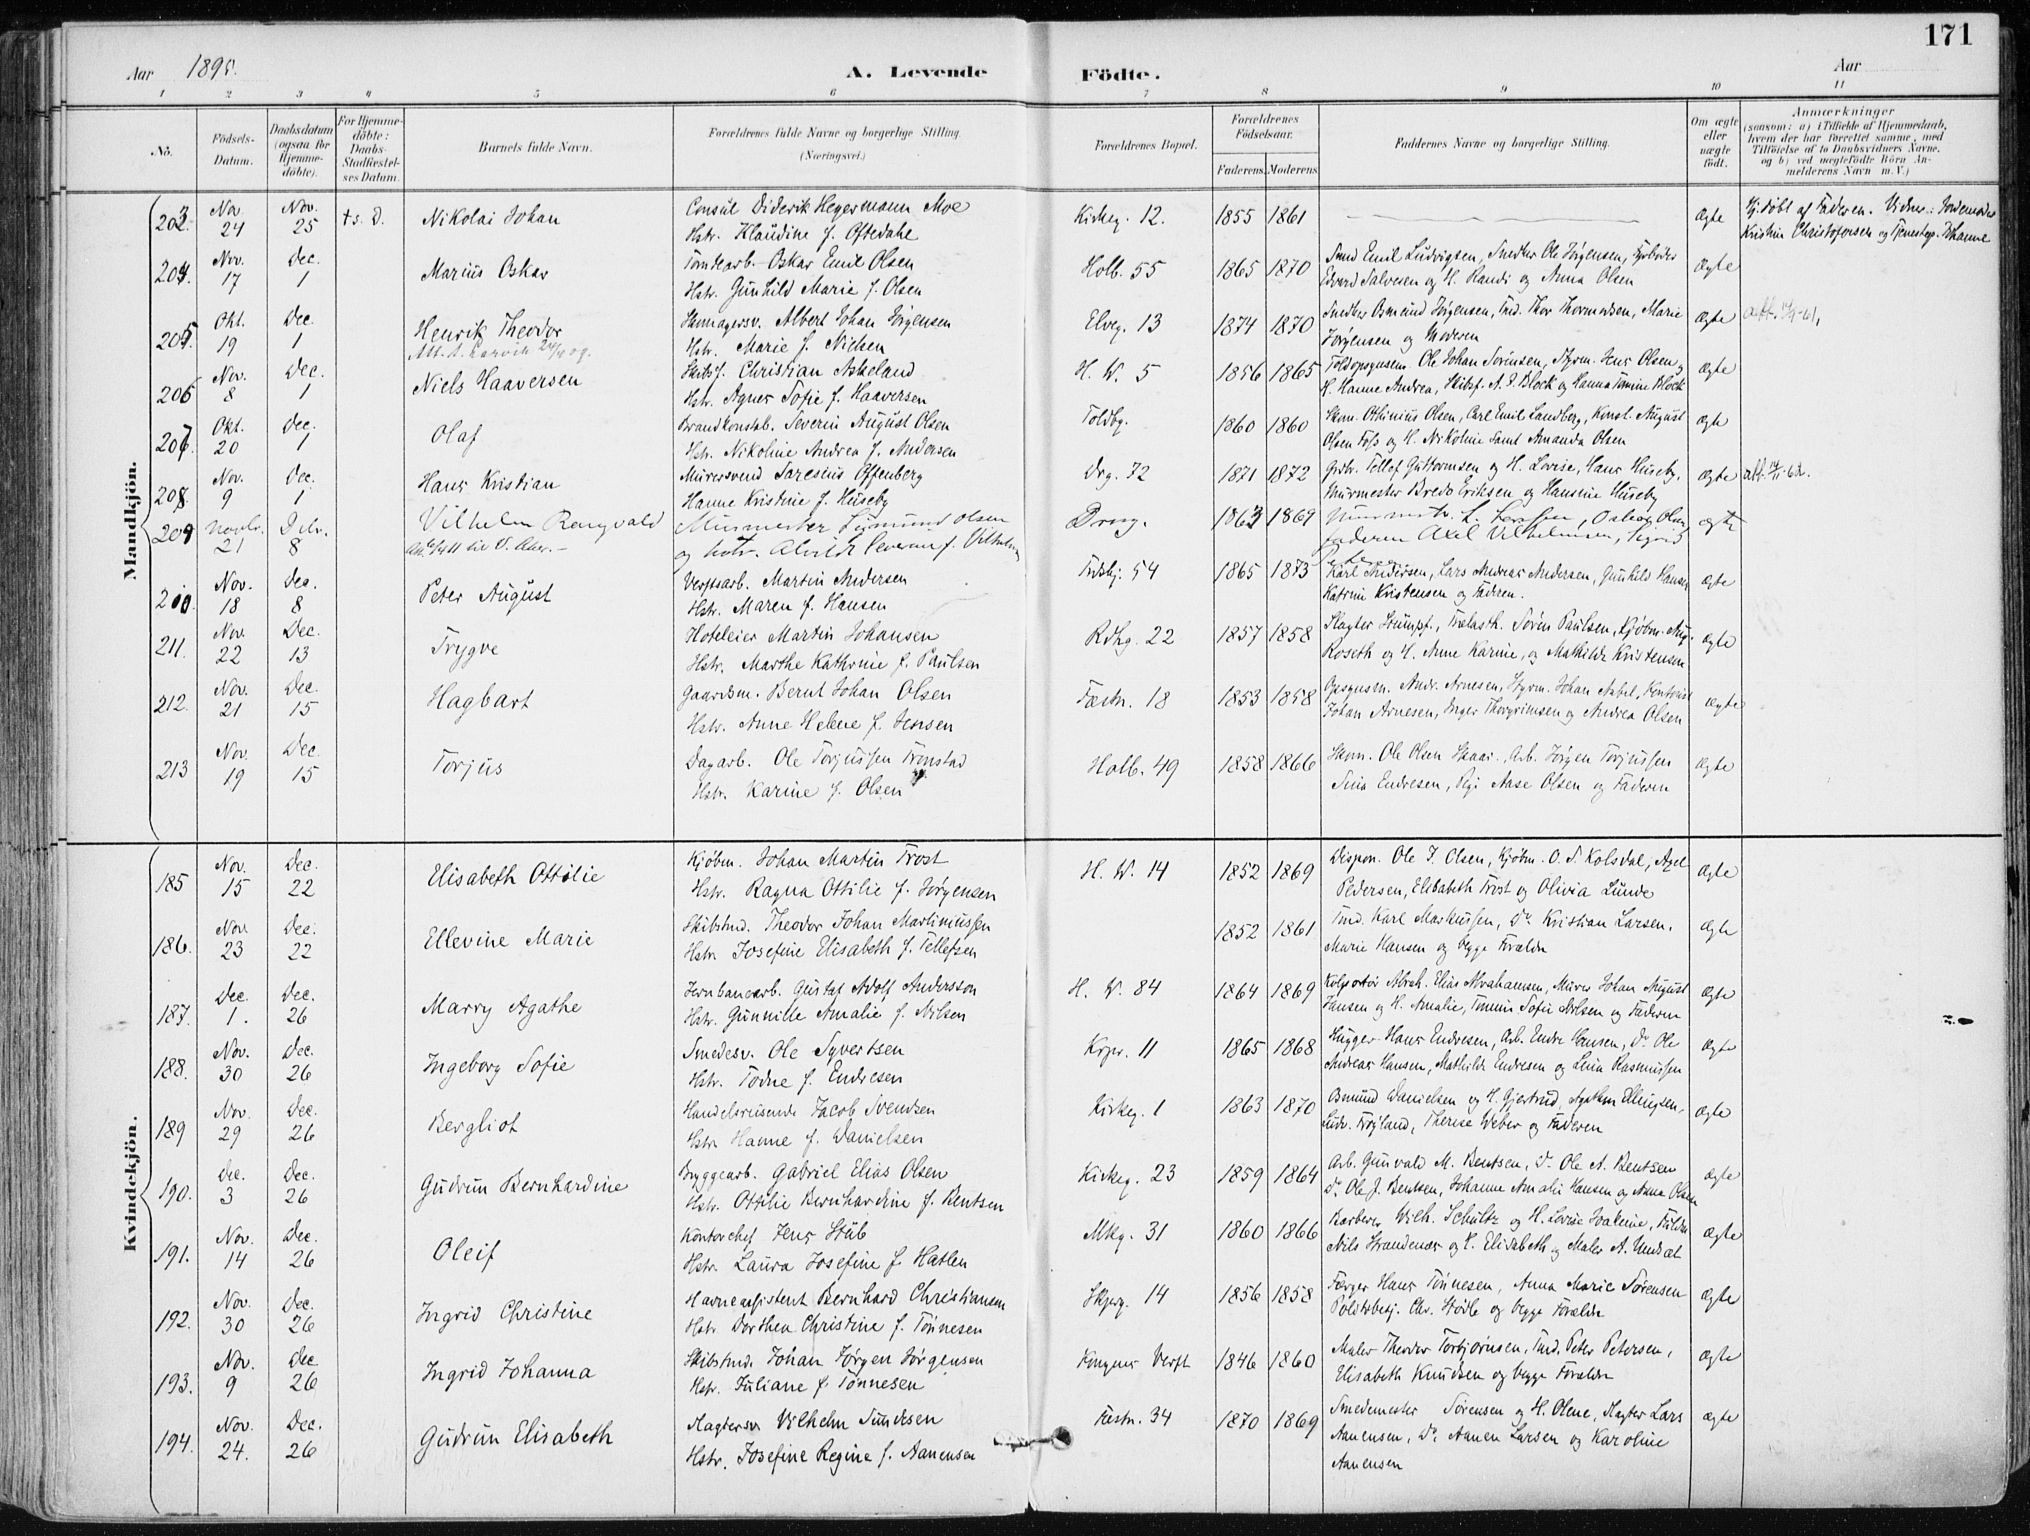 171
Aar 1895. A. Levende Födte. Aar
1 2 3 4 5 6 7 8 9 10 11
No. Födsels-Datum. Daabsdatum (ogsaa for Hjemmedöbte). For Hjemmedöbte: Daabs-Stadfæstelses Datum. Barnets fulde Navn. Forældrenes fulde Navne og borgerlige Stilling. (Næringsvei.) Forældrenes Bopæl. Forældrenes Födselsaar. Faderens Moderens Faddernes Navne og borgerlige Stilling. Om ægte eller uægte födt. Anmærkninger (saasom: a) i Tilfælde af Hjemmedaab, hvem der har forrettet samme, med Tilföielse af to Daabsvidners Navne, og b) ved uægtefödte Börn Anmelderens Navn m. V.)
Mandkjön.
203. Nov. 24 Nov. 25 Nikolai Johan Consul Diderik Hegermann Moe Kirkeg. 12. 1855 1861 Ægte Hj.döbt af Faderen. Vidner: Jordemoder
Hstr. Klaudine f. Oftedahl Kristine Christofersen og
204. Nov. 17 Dec. 1 Marius Oskar Tomtearb. Oskar Emil Olsen Holb. 55 1865 1870 Smed Emil Ludvigsen, Snedker Ole Jörgensen, Fyrböder Ægte
Hstr. Gunhild Marie f. Olsen Edvard Salvesen og H. Randi og Anna Olsen
205 Okt. 19 Dec. 1 Henrik Theodor Skomagersv. Albert Johan Jörgensen Elveg. 13 1874 1870 Snedker Osmund Jörgensen, Tmd. Thor Thormodsen, Marie Ægte
Hstr. Marie f. Nielsen Jörgensen og Moderen
206 Nov. 8 Dec. 1 Niels Haaversen Skibsf. Christian Askeland H. W. 5 1856 1865 Toldopsynsm. Ole Johan Sörensen, Styrm. Jens Olsen og Ægte
Hstr. Agnes Sofie f. Haaversen H. Hanne Andrea, Skibsf. A. P. Block og Hanna Tomine Block
207 Okt. 20 Dec. 1 Olaf Brandkonstab. Severin August Olsen Toldbg. 1860 1860 Skom. Othinius Olsen, Carl Emil Lundberg, Konst. August Ægte
Hstr. Nikoline Andrea f. Andersen Olsen Foss og H. Nikoline samt Amanda Olsen
208 Nov. 9 Dec. 1 Hans Kristian Murersvend Oftenberg Drg. 72 1871 1872 Tellef Guttormsen og H. Lovise, Hans Huseby, Ægte
Hanne Kristine f. Huseby Murmester Bredo Eriksen og Hansine Huseby
209 Novbr. 21 Debr. 8 Vilhelm Rangvald Murmester Sigmund Olsen Drong. 1863 1869 Olsen, ægte
og hstr. Alvilde Severine f. Vilhelmsen Faderen Axel Vilhelmsen, Sigrid
210. Nov. 18 Dec. 8 Peter August Verftsarb. Martin Andersen 54 1865 1873 Karl Andersen, Lars Andreas Andersen, Gunhild Hansen Ægte
Hstr. Maren f. Hansen Katrine Kristensen og Faderen.
211. Nov. 22 Dec. 13 Trygve Hoteleier Martin Johansen Rdhg. 22 1857 1858 Slagter Stumpf., Trælasth. Sören Paulsen, Kjöbm. Aug. Ægte
Hstr. Marthe Kathrine f. Paulsen Roseth og H. Anne Karine, og Mathilde Kristensen
212. Nov. 21 Dec. 15 Hagbart Gaardsm. Bernt Johan Olsen Fæstn. 18 1853 1858 Opsynsm. Andr. Arnesen, Styrm. Johan Aabel, Kontorist Ægte
Hstr. Anne Helene f. Jensen Johan Arnesen, Inger Thorgrimsen og Andrea Olsen
213 Nov. 19 Dec. 15 Torjus Dagarb. Ole Torjussen Tronstad Holb. 49 1858 1866 Skom. Ole Olsen Skaar., Arb. Jörgen Torjussen Ægte
Hstr. Karine f. Olsen Sina Endresen, Pige Aase Olsen og Faderen
Kvindekjön.
185 Nov. 15 Dec. 22 Elisabeth Ottilie Kjöbm. Johan Martin Trost H. W. 14 1852 1869 Dispon. Ole J. Olsen, Kjöbm. O. T. Kolsdal, Axel Ægte
Hstr. Ragna Ottilie f. Jörgensen Pedersen, Elisabeth Trost og Olivia Lunde
186. Nov 23 Dec. 22 Ellevine Marie Skibstmd. Theodor Johan Martiniussen 1852 1861 Tmd. Karl Markussen, Do Kristian Larsen, Ægte
Hstr. Josefine Elisabeth f. Tellefsen Marie Hansen og begge Forældre
187. Dec. 1. Dec. 26 Marry Agathe Jernbanearb. Gustaf Adolf Andersson H. W. 84 1864 1869 Kolportör Abrah. Elias Abrahamsen, Murer Johan August Ægte
Hstr. Gunnille Amalie f. Nilsen Hansen og H. Amalie, Tomine Sofie Nilsen og Faderen
188. Nov. 30 Dec. 26 Ingeborg Sofie Smedesv. Ole Syvertsen Krpr. 11 1865 1868 Hugger Hans Endresen, Arb. Endre Hansen, Do Ole Ægte
Hstr. Todne f. Endresen Andreas Hansen, Mathilde Endresen og Lina Rasmussen
189 Nov. 29 Dec. 26 Bergliot Handelsreisende Jacob Svendsen Kirkeg. 1 1863 1870 Osmund Danielsen og H. Gjertrud, Ellingsen, Ægte
Hstr Hanne f. Danielsen Ludv. Fröyland, Therese Weber og Faderen
190. Dec. 3 Dec. 26 Gudrun Bernhardine Bryggearb. Gabriel Elias Olsen Kirkeg. 23 1859 1864 Arb. Gunvald M. Bentsen, Do Ole A. Bentsen Ægte
Hstr. Ottilie Bernhardine f. Bentsen Do Ole J. Bentsen, Johanne Amalie Hansen og Anna Olsen
191. Nov. 14 Dec. 26 Oleif Kontorchef Jens Stub Mkg. 31 1860 1866 Barberer Wilh. Schultz og H. Lovise Joakime, Ægte
Hstr. Laura Josefine f. Hatlen Nils Strandenæs og H. Elisabeth og Maler A. Undset
192. Nov. 30 Dec. 26 Ingrid Christine Havneassistent Bernhard Christiansen Skjerg. 14 1856 1858 Færger Hans Tönnesen, Anna Marie Sörensen Ægte
Hstr Dorthea Christine f. Tönnesen Politibetj. Chr. Stöle og begge Forældre
193. Nov. 9 Dec 26 Ingrid Johanna Skibstmd. Johan Jörgen Jörgensen Kongens Verft 1846 1860 Maler Theodor Torbjörnsen, Tmd. Peter Petersen, Ægte
Hstr. Juliane f. Tönnesen Elisabeth Knudsen og begge Forældre
194. Nov. 24. Dec. 26 Gudrun Elisabeth Slagtersv Vilhelm Sundsen Fæstn. 34 1870 1869 Smedemester Sörensen og H. Olene, Slagter Lars Ægte
Hstr. Josefine Regine f. Aanensen Aanensen, Do. Aanen Larsen og Karoline
Aanensen